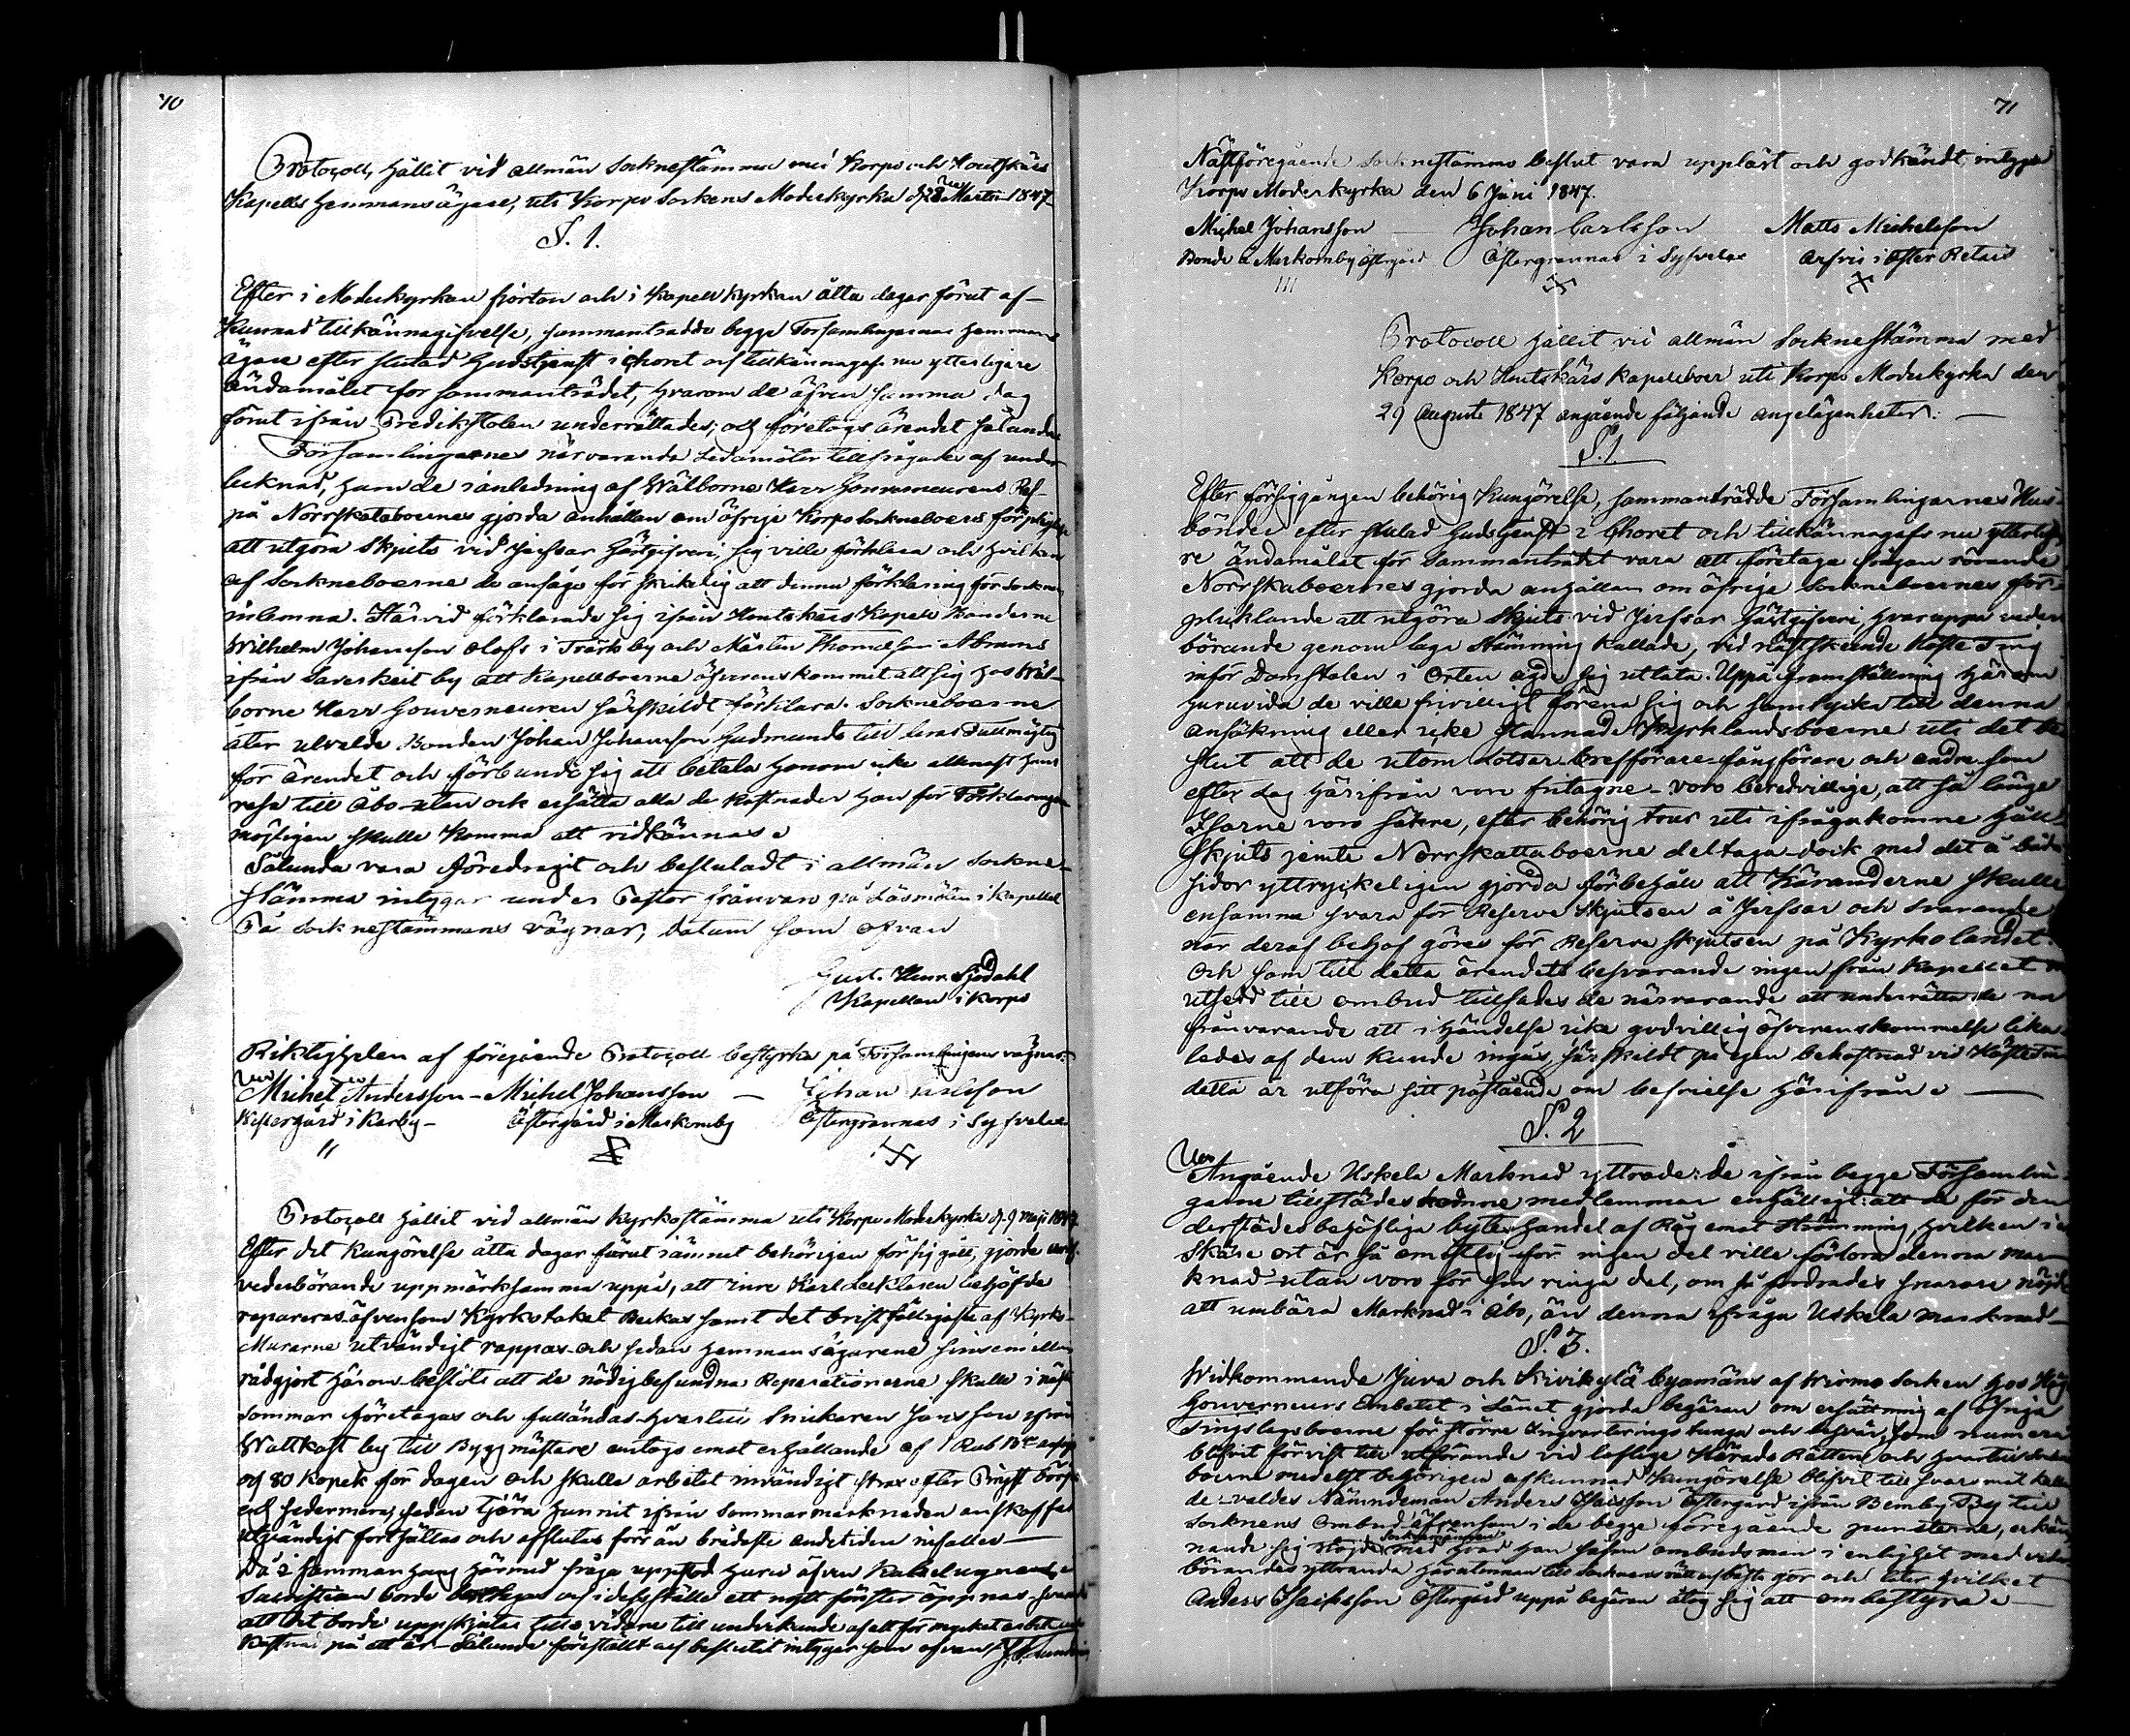 70
Protocoll, hållit vid allmän Socknestämma med Korpo och Houtskärs
Kapells Hemmansägare, uti Korpo Sockens Moderkyrka d. 28 Martii 1847
S. 1.
Efter i Moderkyrkan fjorton och i Kapell Kyrkan åtta dagar förut af-
kunnad tillkännagifvelse, sammanträdde begge Församlingarnas Hemmans
ägare efter slutad Gudstjenst i Choret och tillkännagafs nu ytterligare
ändamålet för sammanträdet, hvarom de äfven samma dag
förut ifrån Predikstolen underrättades, och företogs ärendet sålunda
Församlingarnes närvarande Ledamöter tillfrågades af under
tecknad, huru de i anledning af Wälborne Herr Gouverneurens Res-
på Norrskataboernes gjorda anhållan om öfrige Korpo Socknboers förpligtelse
att utgöra Skjuts vid Jerfsar Gästgifveri, sig ville förklara och hvilken
af Sockneboerne de ansågo för skickelig att denna förklaring för Socknen
inlemna. Härvid förklarade sig ifrån Houtskärs Kapell Bönderne
Wilhelm Johansson Olofs i Träsk by och Mårten Thomasson Abrams
ifrån Saverkeit by att Kapellboerne öfverenskommit att sig hos Wäl-
borne Herr Gouverneuren särskildt förklara. Sockneboerne
åter utvalde Bonden Johan Johansson Gudmunds till deras Fullmägtig
för ärendet och förbundo sig att betala honom icke allenast hans
resa till Åbo utan ock ersätta alla de kostnader han för Förklaringen
möjligen skulle komma att vidkännas.
Sålunda vara föredragit och beslutadt i allmän Sockne-
stämma intygar under Pastor frånvaro på Läsmöten i Kapellet
På Socknestämmans vägnar, datum som ofvan
Gust. Henr. Sjödahl
Kapellan i Korpo
Riktigheten af föregående Protocoll bestyrka på Församlingens vägnar
Michel Andersson - Michel Johansson - Johan Carlsson
Westergård i Korby - Östergård i Maskomby Östergrannas i Syfvelax
Protocoll hållit vid allmän Kyrkostämma uti Korpo Moderkyrka d. 9 Maji 1847
Efter det Kungörelse åtta dagar förut i ämnet behörigen för sig gått, gjorde
vederbörande uppmärksamma uppå, att inre Karl Läcklaren behöfde
repareras äfvensom Kyrkotaket Beckas samt det bristfälligaste af Kyrko-
Murarne utvändigt rappas och sedan Hemmansägarene sins emellan
rådgjort härom beslöts att de nödigbefundna Reparationerne skulle i nästa
sommar företagas och fulländas hvartill Snickaren Jansson ifrån
Wattkast by till Byggmästare antogs emot erhållande af 1 Rub
och 80 Kopek för dagen och skulle arbetet invändigt strax efter Pingst börjas
och sedermera, sedan Tjära hunnit ifrån Sommarmarknaden anskaffas
utvändigt fortsättas och afslutas förr än brådaste andetiden infaller
Då i sammanhang härmed fråga uppstod huru äfven Kakelugnen i
Sacristian borde borttagas och i dess ställe ett nytt fönster öppnas, svarades
att det borde uppskjutas tills vidare till undvikande af allt för mycket arbete och
kostnad på ett år. Sålunda föreställt och beslutit intygar som ofvan
71
Nästföregående Socknestämmo beslut vara uppläst och godkändt intyga
Korpo Moderkyrka den 6 Juni 1847.
Michel Johansson - Johan Carlsson Matts Michelsson
Bonde å Maskomby Östergård Östergrannas i Syfvelax Arfvis i Öster Retais
Protocoll hållit vid allmän Socknestämma med
Korpo och Houtskärs Kapellboer uti Korpo Moderkyrka den
29 Augusti 1847 angående följande angelägenheter: -
S. 1.
Efter försiggången behörig Kungörelse, sammanträdde Församlingarnes Hus-
bönder efter slutad Gudstjenst i Choret och tillkännagafs nu ytterliga-
re ändamålet för Sammanträdet vara att företaga frågan rörande
Norrskataboernes gjorda anhållan om öfrige Sockneboernes för-
pliktande att utgöra Skjuts vid Jerfsar Gästgifveri, hvaruppå veder-
börande genom laga stämning kallade, vid nästskeende Höste Ting
inför Domstolen i Orten ägde sig utlåta. Uppå framställning härom
huruvida de ville frivilligt förena sig och samtycka till denna
ansökning eller icke stannade Kyrklandsboerne uti det be-
slut att de utom Lotsar brefförare fångförare och andre som
efter Lag härifrån voro fritagne - voro beredvillige, att så länge
Isarne voro säkre, efter behörig tour uti ifrågakomne håll-
Skjuts jemte Norrskattaboerne deltaga - dock med det å båda
sidor yttryckeligen gjorda förbehåll att Käranderne skulle
ensamme svara för Reserve Skjutsen å Jerfsar och Svarande
när deraf behof göres för Reserve Skjutsen på Kyrkolandet.
Och som till detta ärendets besvarande ingen från Kapellet
utsedd till ombud tillsades de närvarande att underrätta de nu
frånvarande att i händelse icke godvillig öfverenskommelse lika-
ledes af dem kunde ingås, särskildt på egen bekostnad vid Hösteting
detta år utföra sitt påstående om befrielse härifrån.
S. 2
Angående Uskela Marknad yttrade: de ifrån begge Församlin-
garne tillstädeskomne medlemmar enhälligt: att de för den
derstädes behöfliga byteshandel af Råg emot Strömming, hvilken i
Skäre ort är så omistlig för ingen del ville förlora denna mar-
knad - utan voro för sin ringa del, om så fordrades snarare nöjde
att umbära Marknad i Åbo, än denna ifråga Uskela marknad -
S. 3.
Widkommande Juva och Kivikylä byamäns af Wirmo Socken hos Hög
Gouverneurs Embetet i Länet gjorda begäran om ersättning af öfriga
Tingslagsboerne för större Inqvarterings tunga och besvär, som numera
blifvit förvist till utförande vid loflige Härads Rätten och hvartill Sockne
boerne medelst behörigen afkunnad Kungörelse blifvit till svaromål kalla-
de - valdes Nämndeman Anders Isaksson Östergård ifrån Bemby By till
Socknens ombud äfvensom i de begge föregående puncterne, erkän-
Socknemännen
nande sig nöjde med hvad han såsom ombudsman i enlighet med veder
börandes yttranda härutinnan till Socknens rätt och bästa gör och låter hvilket
Anders Isaksson Östergård uppå begäran åtog sig att ombestyra.